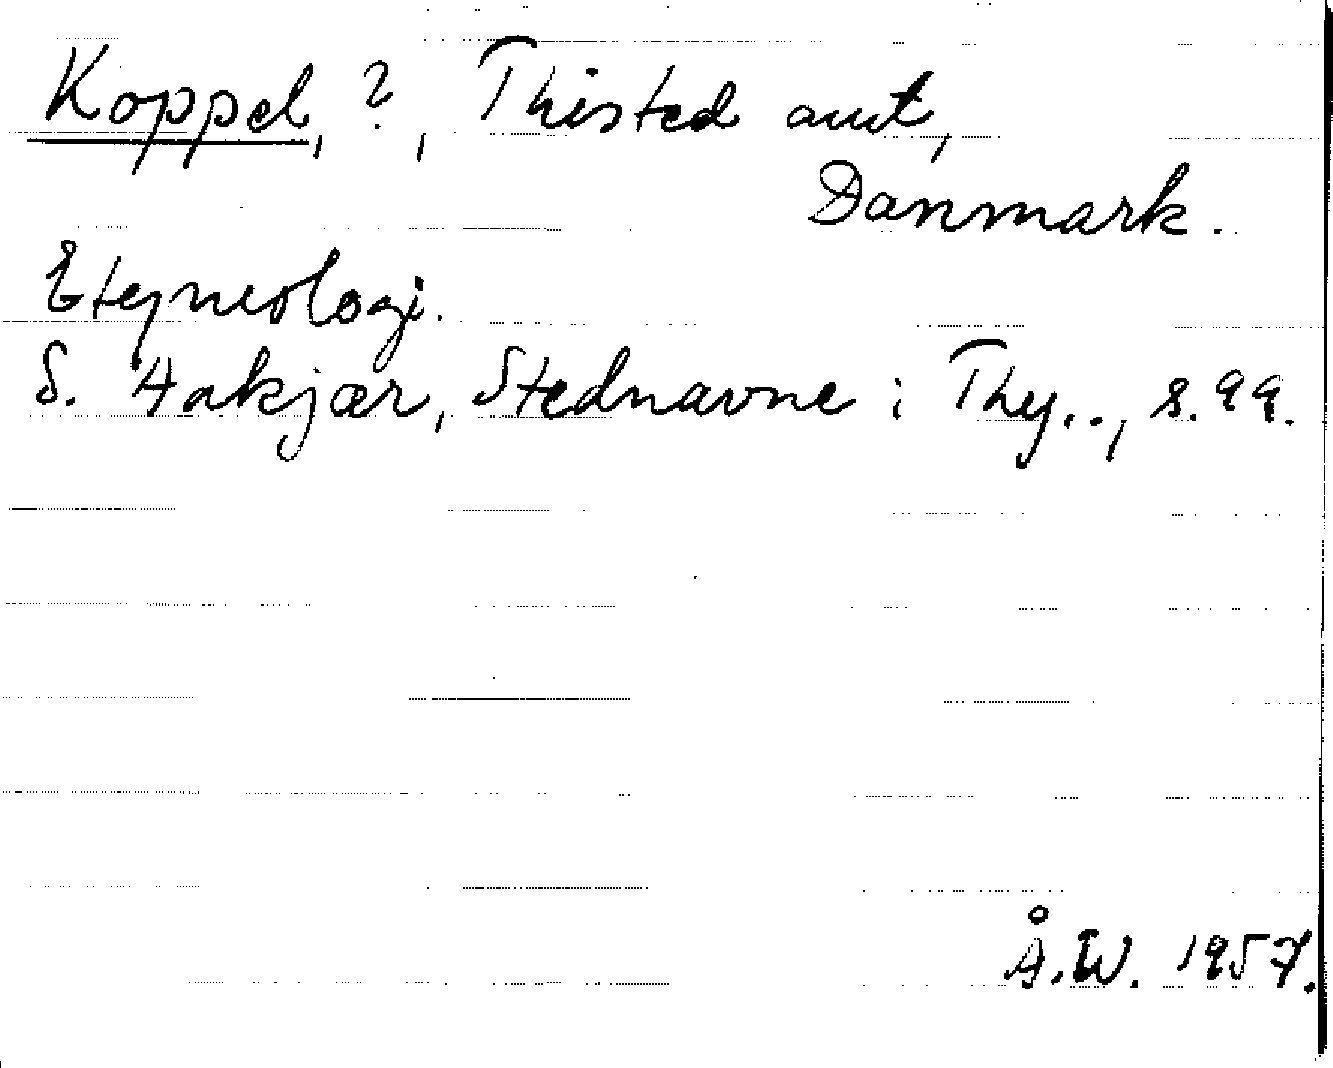 Koppel, ?, Thisted amt,
Danmark.
Etymologi.
S. Hakjær, Stednavne i Thy.., s. 99.
Å.W. 1957.